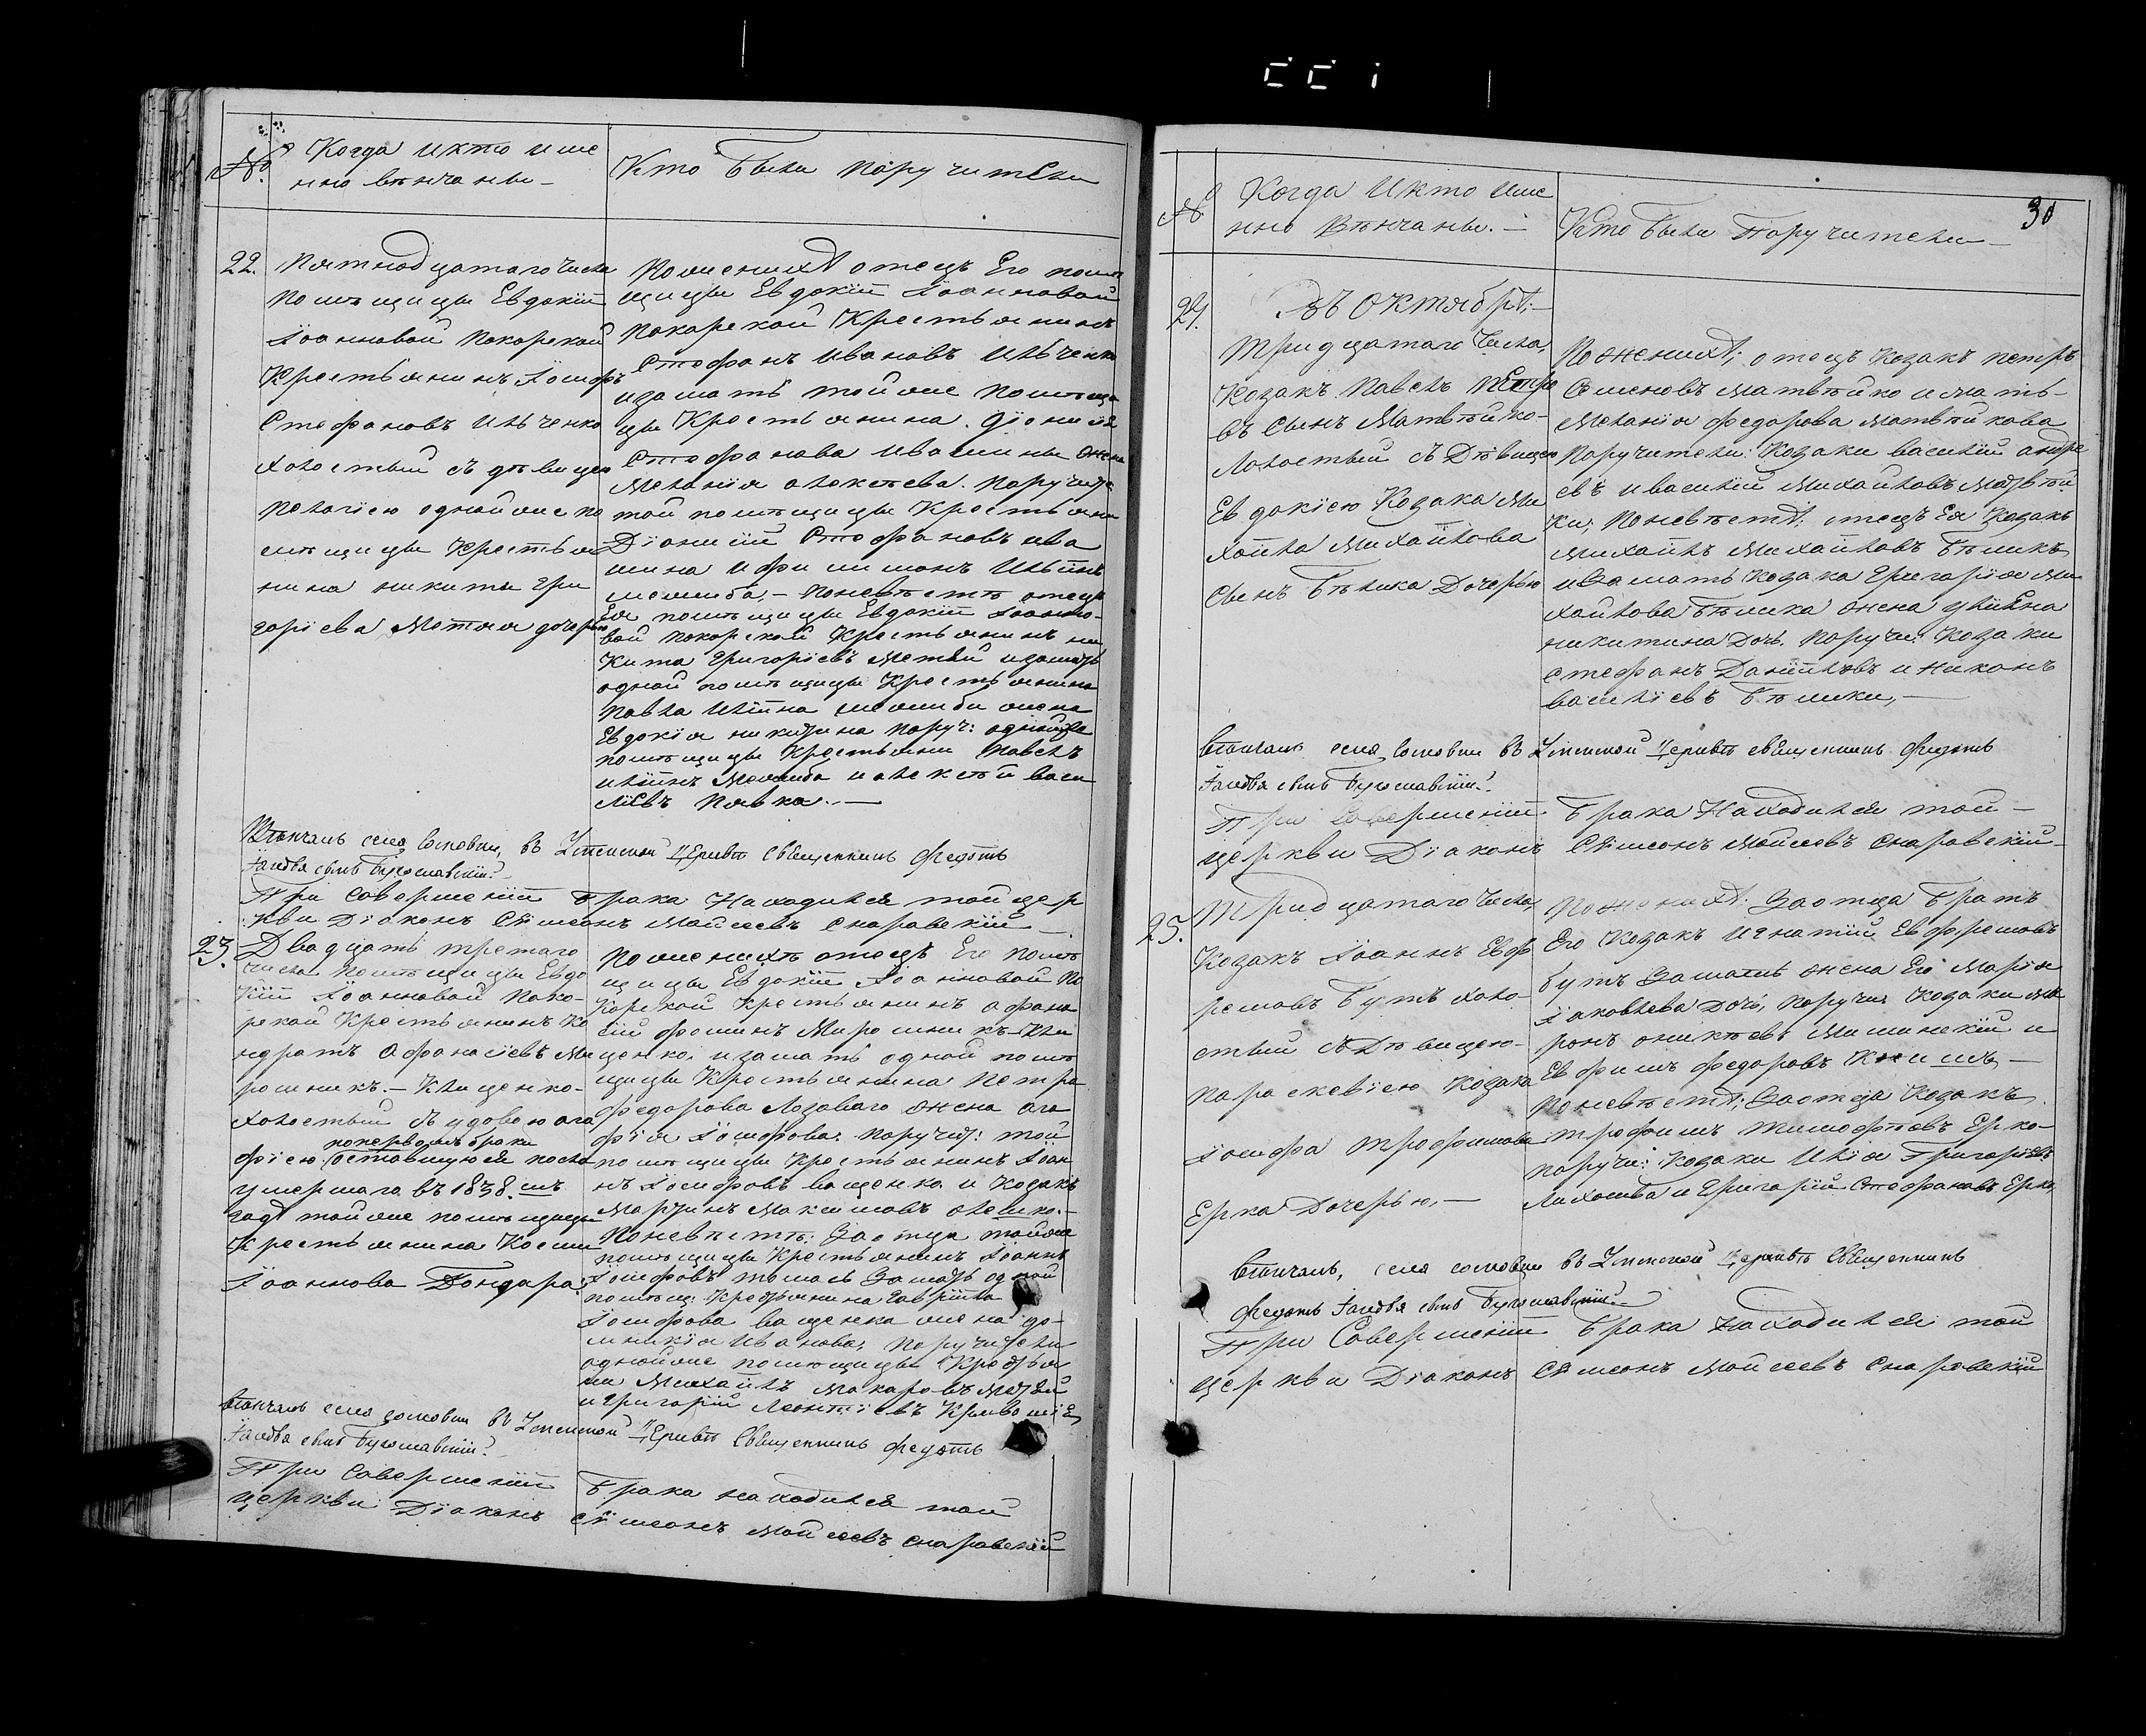 №
Когда и кто име
нно вѣнчаны
Кто были поручители
22.
Пятнадцатаго числа
помѣщицы Евдокіи
Іоанновой Покорской
крестьянинъ Іосифъ
Стефановъ Ильченко
холостый съ дѣвицею
Пелагіею одной же по
мѣщицы крестья
нина Никиты Гри
горіева дочерью
По женихѣ отецъ его помѣ
щицы Евдокіи Іоанновой
Покорской крестьянинъ
Стефанъ Ивановъ Ильченко
иза мать той же помѣщи
цы крестьянина Діонисія
Стефанова жена
Меланія Алексѣева. Поручите
той помѣщицы крестьяни
Діонисій Стефановъ Ива
шина и Филимонъ Ильинъ
Понєвѣстѣ отецъ
Ея помѣщицы Евдокіи Іоанно-
вой Покорской крестьянинъ Ни
кита Григоріевъ изамать
одной помѣщицы крестьянина
Павла Ильина жена
Евдокія Никитина поруч: одной же
помѣщицы крестьяни Павелъ
Ильинъ и Алексѣй Васи
ліевъ
Вѣнчалъ села въ Успенской Церквѣ священникъ Федотъ
Іаковля сынъ Богославскій.
При совершеніи брака находился той цер
кви Діаконъ Сѵмеонъ Мойсеевъ Снаровскій
23.
Двадцать третаго
числа помѣщицы Евдо
кіи Іоанновой Поко-
рской крестьянинъ Ко
ндратъ Афанасіевъ Ми
рошникъ.- Клищенко-
холостый съ удовою Ага
по первомъ браки
фіею оставшуюся послѣ
умершаго въ 1838.мъ
годѣ той же помѣщицы
крестьянина Космы
Іоаннова Бондара.
По женихѣ отецъ Его помѣ
щицы Евдокіи Іоанновой По
корской крестьянинъ Афана
сій Фоминъ Мирошникъ-Кли
щенко, изамать одной помѣ
щицы крестьянина Петра
Федорова Лозоваго жена Ага
фія Іосифова: поручит: той
помѣщицы крестьянинъ Іоан
нъ Іосифовъ Ващенко и козакъ
Мартинъ Максимовъ
Поневѣстѣ: За отца той же
помѣщицы крестьянинъ Іоаннъ
Іосифовъ За мать одной
помѣщ: крестьянина Гавріила
Іосифова Ващенка жена До-
мникія Иванова, поручители
одной же помѣщицы крестья
ни Михаилъ Макаровъ
и Григорій Леонтіевъ
Вѣнчалъ села въ Успенской Церквѣ Священникъ Федотъ
Іаковля сынъ Богославскій.
При Совершеніи брака находился той
церкви Діаконъ Сѵмеонъ Мойсеевъ Снаровскій
30
№
Когда и кто име
нно вѣнчаны.-
Кто были поручители
24.
Въ октябрѣ.-
Тридцатаго числа,
козакъ Павелъ Петро
въ сынъ Матвѣйко-
холостый съ дѣвицею
Евдокіею козака Ми
хайла Михайлова
сынъ Бѣлика дочерью
По женихѣ, отецъ козакъ Петръ
Семеновъ Матвѣйко и мать-
Меланія Федорова Матвѣйкова
поручители: козаки Василій Андре
евъ и Василій Михайловъ Матвѣй
ки, Поневѣстѣ: отецъ Ея козакъ
Михайлъ Михайловъ
иза мать козака Григорія Ми
хайлова жена
Никитина дочь. поручи: козаки
Стефанъ Даніиловъ и Никонъ
Василіевъ
Вѣнчалъ села въ Успенской Церквѣ священникъ Федотъ
Іаковля сынъ Богославскій.
При совершеніи брака находился той-
церкви Діаконъ Сѵмеонъ Мойсеевъ Снаровскій
25.
Тридцатаго числа,
козакъ Іоаннъ Евф
ремовъ Бутъ холо-
стый съ дѣвицею-
Параскевіею козака
Іосифа Трофимова
Ерка дочерью,-
По женихѣ: За отца братъ
Его козакъ Игнатій Евфремовъ
Бутъ за мать жена Его Марія
Іаковлева дочь, поручи: козаки Ми
ронъ и
Евфимъ Федоровъ
Поневѣстѣ; За отца козакъ
Трофимъ Тимофѣевъ Ерко-
поручи: козаки Илія Григоріевъ
и Григорій Стефановъ Ерко,
Вѣнчалъ, села въ Успенской Церквѣ Священникъ
Федотъ Іаковля сынъ Богославскій.
При Совершеніи брака находился той
церкви Діаконъ Сѵмеонъ Мойсеевъ Снаровскій